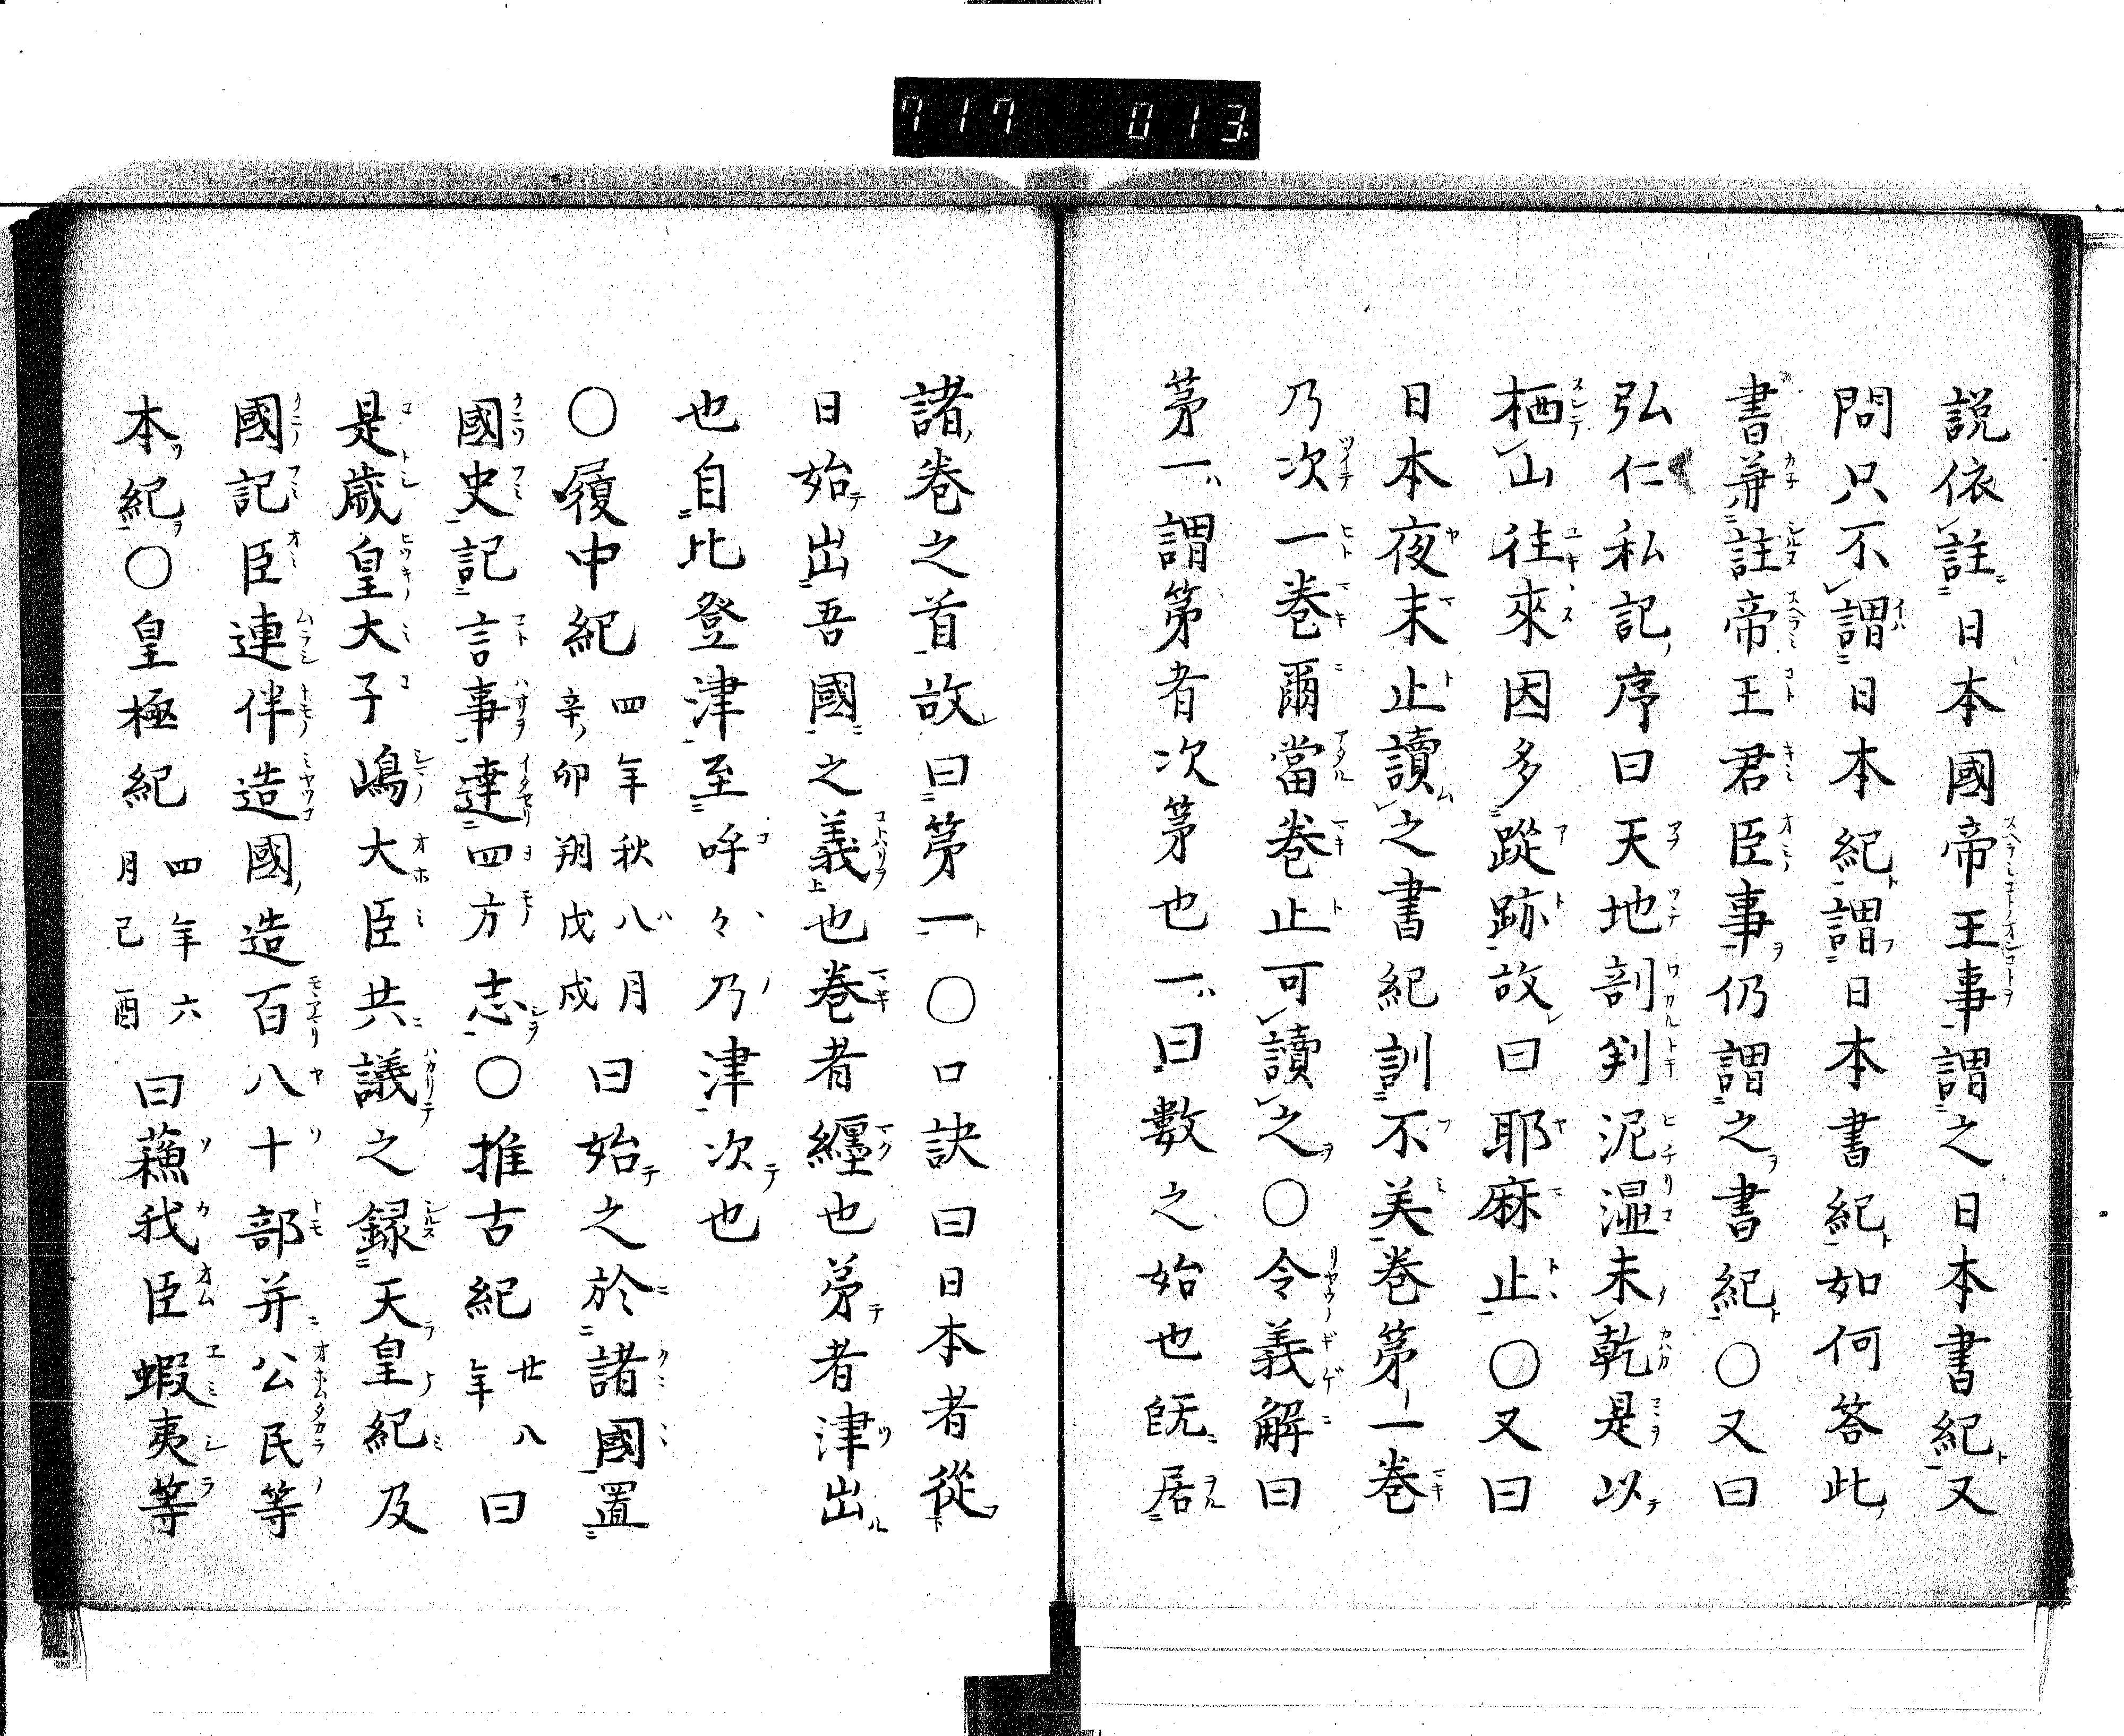 717 013.
説依註日本國帝王事謂之日本書紀又
問只不謂日本紀謂日本書紀如何答此
書兼註帝王君臣事仍謂之書紀○又曰
弘仁私記序曰天地剖判泥湿未乾是以
栖山往來因多蹤跡故曰耶麻止○又曰
日本夜末止讀之書紀訓不美巻第一巻
乃次一巻爾當巻止可讀之○令義解曰
第一謂第者次第也一曰數之始也既居
諸巻之首故曰第一○口訣曰日本者從
日始出吾國之義也巻者纏也第者津出
也自比登津至呼々乃津次也
○履中紀四年秋八月辛卯朔戊戌曰始之於諸國置
國史記言事達四方志○推古紀廿八年曰
是歳皇大子嶋大臣共議之録天皇紀及
國記臣連伴造國造百八十部并公民等
本紀○皇極紀四年六月己酉曰蘓我臣蝦夷等